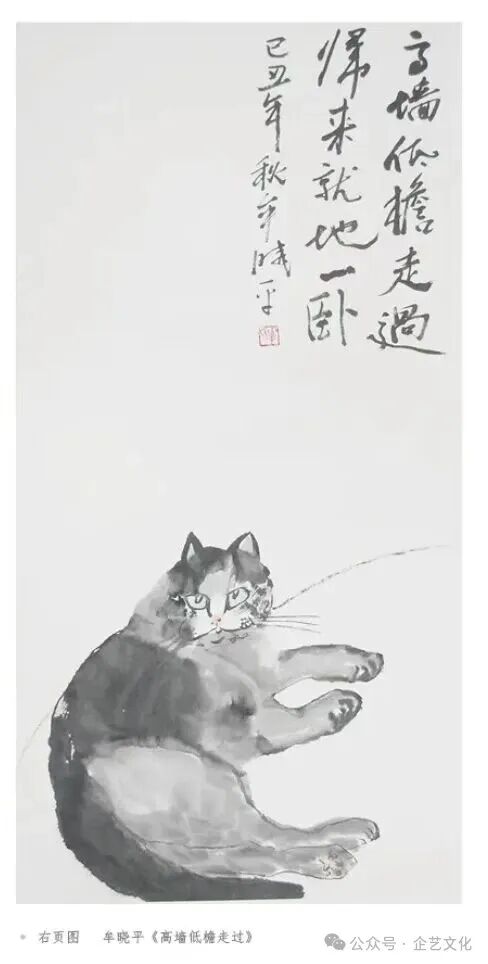 高墙低檐走過
帰来就地一卧
己丑年秋牟晓平
右页图 牟晓平《高墙低檐走过》
公众号 · 企艺文化